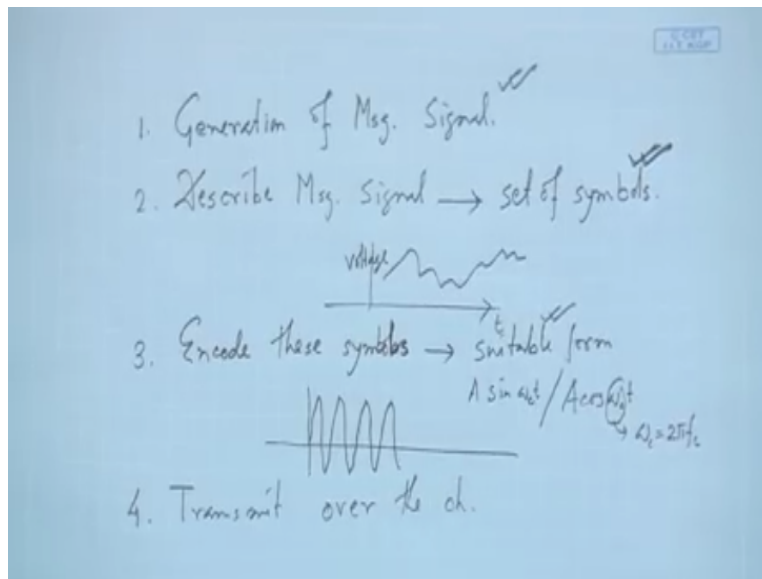 C CET
I.I.T. KGP
1. Generation of Msg. Signal.
2. Describe Msg. Signal → set of symbols.
voltage
t
3. Encode these symbols → suitable form
A sin ω_c t / A cos ω_c t
→ ω_c = 2πf_c
4. Transmit over the ch.